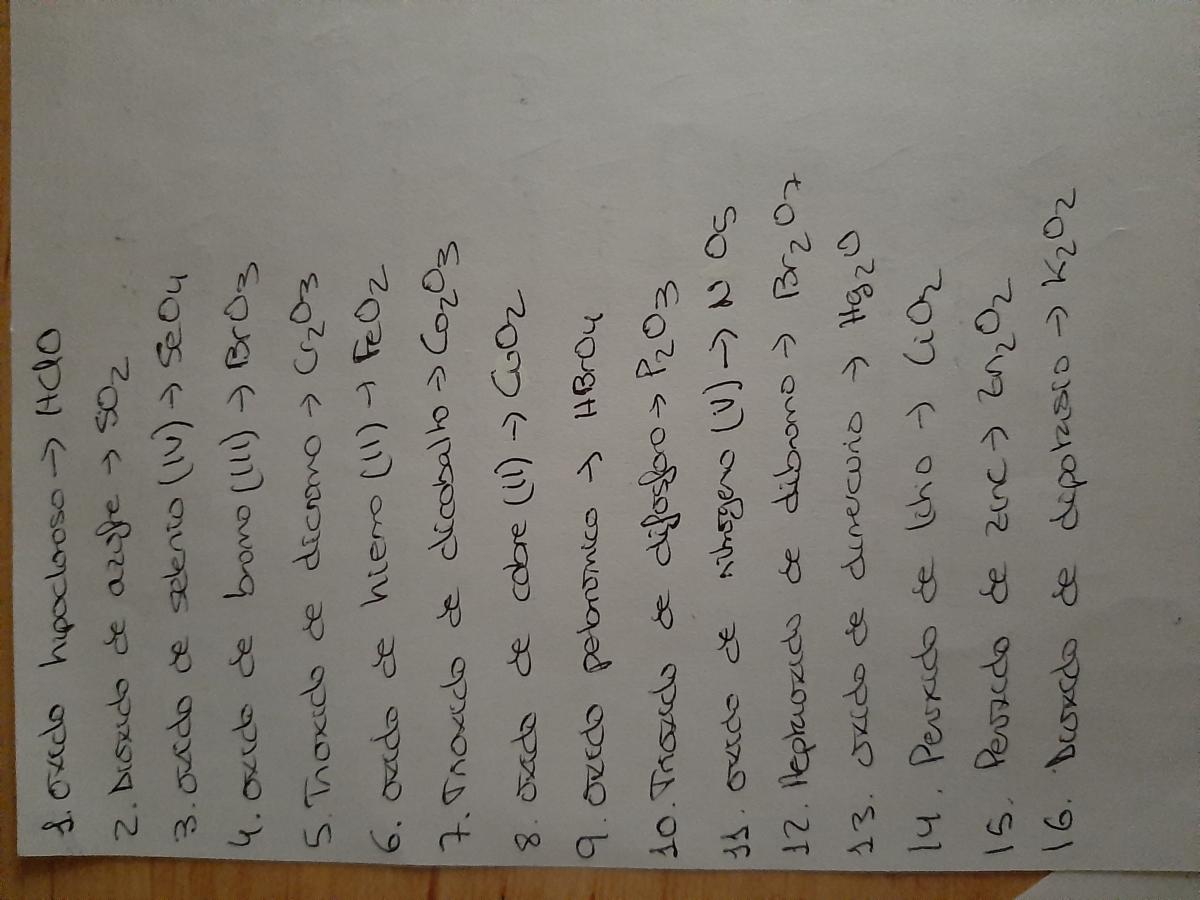 1. oxido hipocloroso → HClO
2. Dioxido de azufre → SO2
3. oxido de selenio (IV) → SeO4
4. oxido de bromo (III) → BrO3
5. Trioxido de dicromo → Cr2O3
6. oxido de hierro (II) → FeO2
7. Trioxido de dicobalto → Co2O3
8. oxido de cobre (II) → CuO2
9. oxido perbromico → HBrO4
10. Trioxido de difosforo → P2O3
11. oxido de nitrogeno (V) → NO5
12. Heptaoxido de dibromo → Br2O7
13. oxido de dimercurio → Hg2O
14. Peroxido de litio → LiO2
15. Peroxido de zinc → Zn2O2
16. Dioxido de dipotasio → K2O2